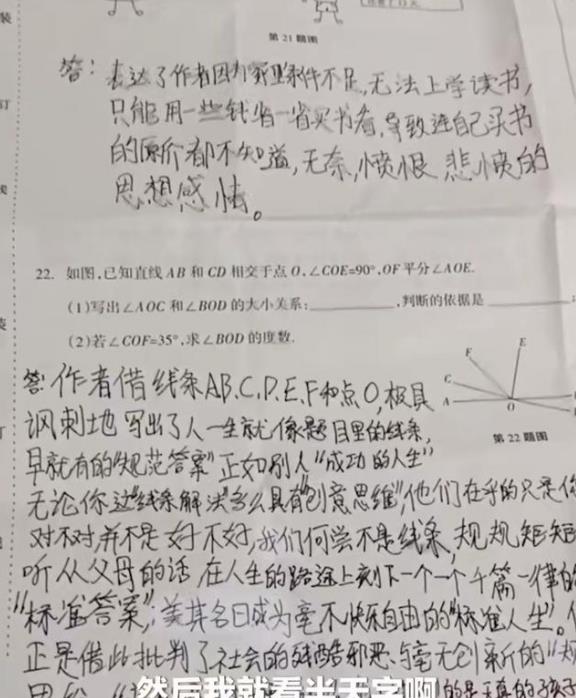 第21题图
答：表达了作者因为家里条件不足,无法上学读书,
只能用一些钱省一省买书看,导致连自己买书
的原价都不知道,无奈,愤恨,悲愤的
思想感情。
22. 如图,已知直线 AB 和 CD 相交于点 O,∠COE=90°,OF 平分∠AOE.
(1)写出∠AOC 和∠BOD 的大小关系:,判断的依据是
(2)若∠COF=35°,求∠BOD 的度数.
E
F
C
A
O
第22题图
答:作者借线条AB.C.D.E.F和点O,极具
讽刺地写出了人一生就像题目里的线条,
早就有的“规范答案”正如别人“成功的人生”
无论你这“线条解法”多么具有“创意思维”,他们在乎的只是你
对不对,并不是好不好,我们何尝不是线条,规规矩矩
听从父母的话,在人生的路途上刻下一个一个千篇一律的
“标准答案”,美其名曰成为毫不快乐自由的“标准人生”。
正是借此批判了社会的残酷邪恶与毫无创新的
然后我就看半天字啊